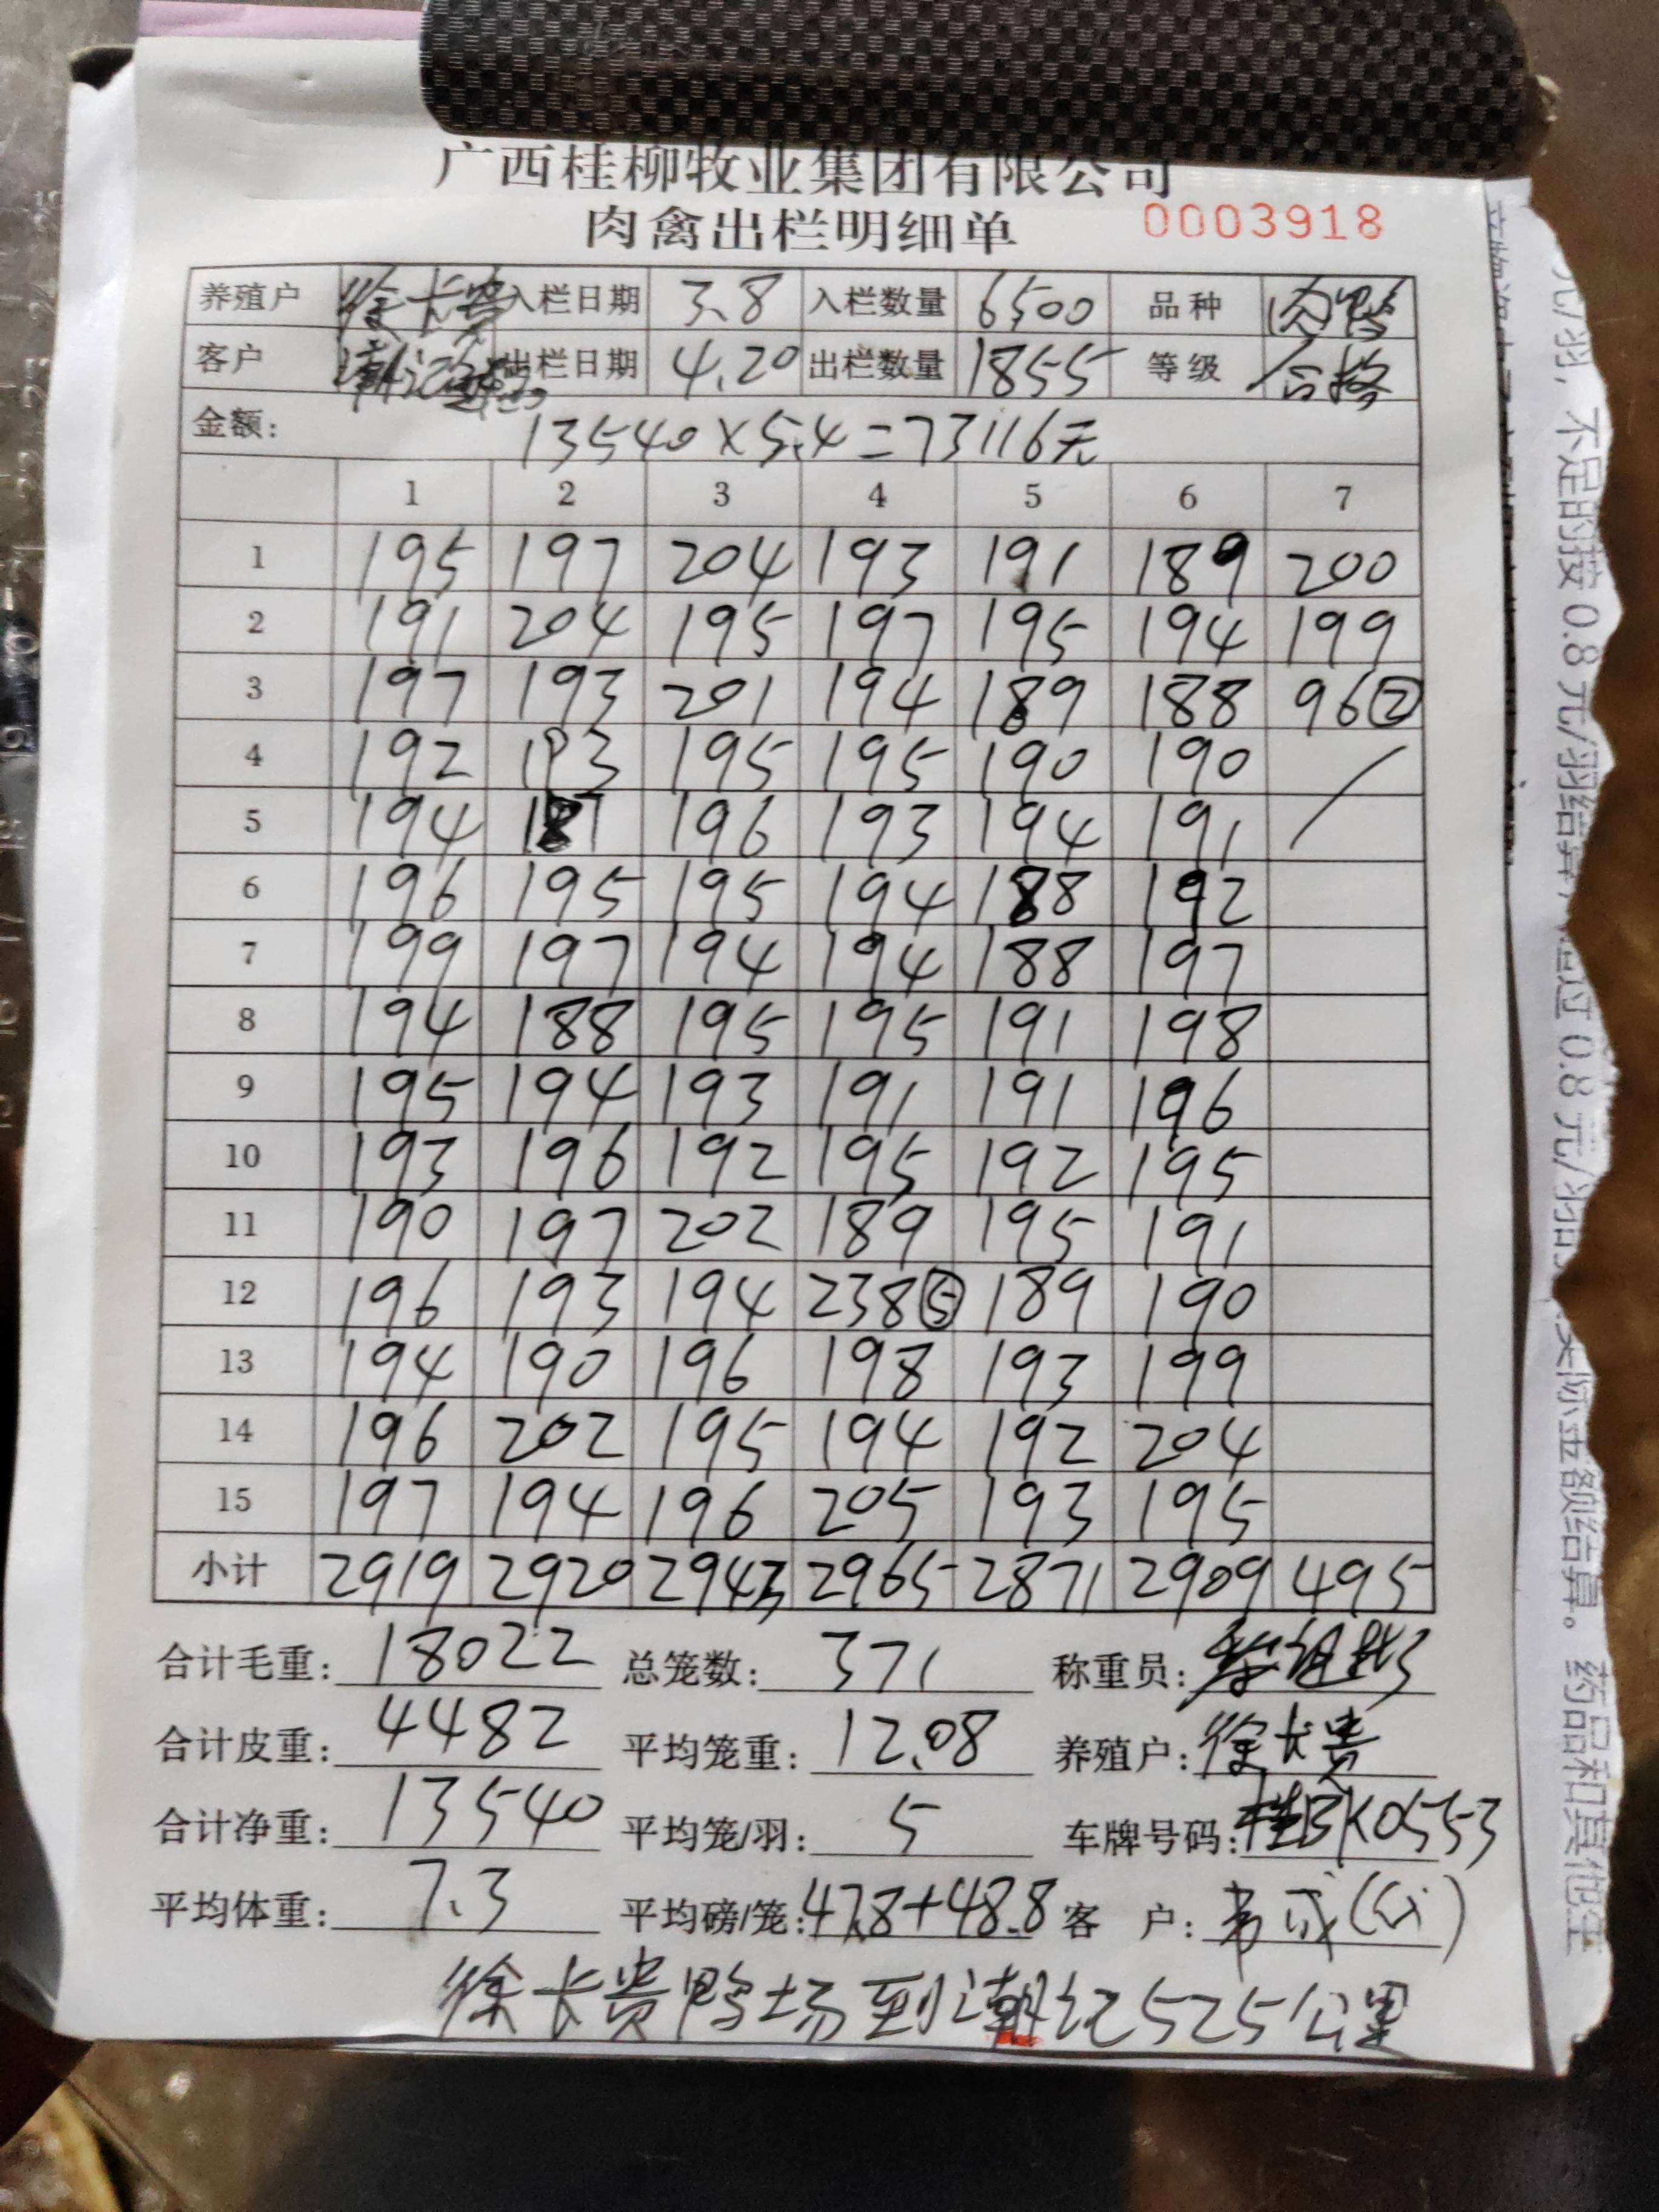 广西桂柳牧业集团有限公司
肉禽出栏明细单 0003918
养殖户 徐长贵 入栏日期 3.8 入栏数量 6500 品种 肉鸭
客户 潮记 出栏日期 4.20 出栏数量 1855 等级 合格
金额: 13540×5.4=73116元
1 2 3 4 5 6 7
1 195 197 204 193 191 189 200
2 191 204 195 197 195 194 199
3 197 193 201 194 189 188 96②
4 192 193 195 195 190 190
5 194 187 196 193 194 191
6 196 195 195 194 188 192
7 199 197 194 194 188 197
8 194 188 195 195 191 198
9 195 194 193 191 191 196
10 193 196 192 195 192 195
11 190 197 202 189 195 191
12 196 193 194 238⑤ 189 190
13 194 190 196 198 193 199
14 196 202 195 194 192 204
15 197 194 196 205 193 195
小计 2919 2920 2943 2965 2871 2909 495
合计毛重: 18022 总笼数: 371 称重员:
合计皮重: 4482 平均笼重: 12.08 养殖户: 徐长贵
合计净重: 13540 平均笼/羽: 5 车牌号码: 桂BK0553
平均体重: 7.3 平均磅/笼: 47.8+48.8 客户:
徐长贵鸭场到潮记525公里
元/羽，不足的按0.8元/羽结算，超过0.8元/羽的按实际金额结算。药品和其他生